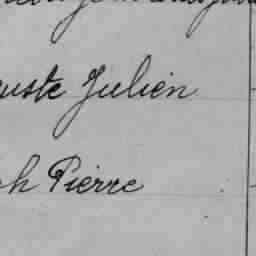 uste Julien
ph Pierre